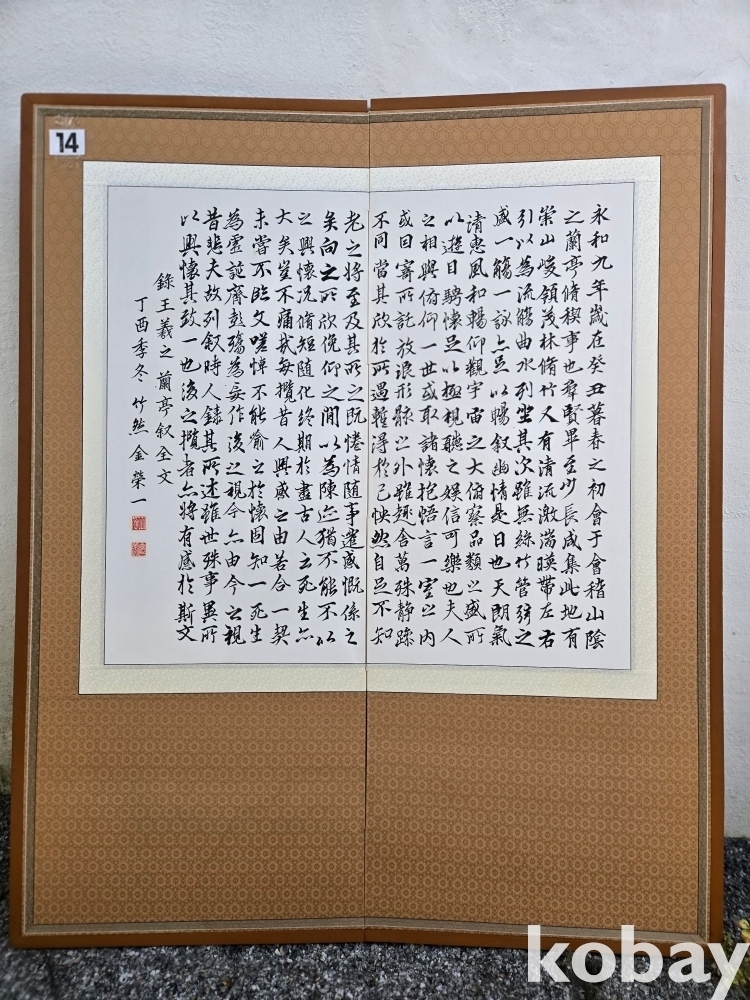 14
永和九年歲在癸丑暮春之初會于會稽山陰
之蘭亭脩稧事也羣賢畢至少長咸集此地有
崇山峻領茂林脩竹又有清流激湍暎帶左右
引以為流觴曲水列坐其次雖無絲竹管弦之
盛一觴一詠亦足以暢叙幽情是日也天朗氣
清惠風和暢仰觀宇宙之大俯察品類之盛所
以遊目騁懷足以極視聽之娛信可樂也夫人
之相與俯仰一世或取諸懷抱悟言一室之內
或因寄所託放浪形骸之外雖趣舍萬殊静躁
不同當其欣於所遇暫得於己怏然自足不知
老之將至及其所之既惓情隨事遷感慨係之
矣向之所欣俛仰之間以為陳迹猶不能不以
之興懷况脩短隨化終期於盡古人云死生亦
大矣豈不痛哉每攬昔人興感之由若合一契
未嘗不臨文嗟悼不能喻之於懷固知一死生
為虛誕齊彭殤為妄作後之視今亦由今之視
昔悲夫故列叙時人錄其所述雖世殊事異所
以興懷其致一也後之攬者亦將有感於斯文
錄王羲之 蘭亭叙全文
丁酉季冬 竹然 金榮一
kobay